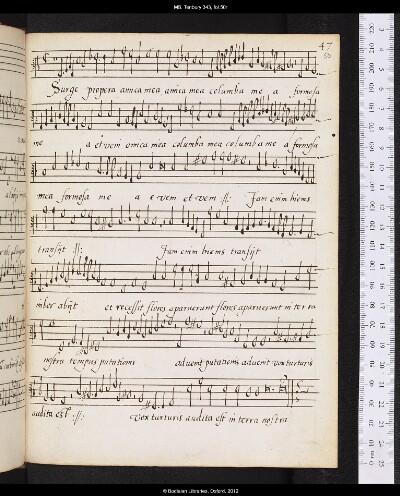 MS. Tenbury 343, fol.50r
47
50
Surge propera amica mea amica mea columba me a formosa
me a et veni amica mea columba mea columba me a formosa
mea formosa me a e veni et veni :||: Jam enim hiems
transijt :||: Jam enim hiems transijt
imber abijt et recessit flores aparuerunt flores aparuerunt in ter ra
nostra tempus putationis advenit putationis advenit vox turturis
audita est :||: vox turturis audita est in terra nostra
© Bodleian Libraries, Oxford, 2012